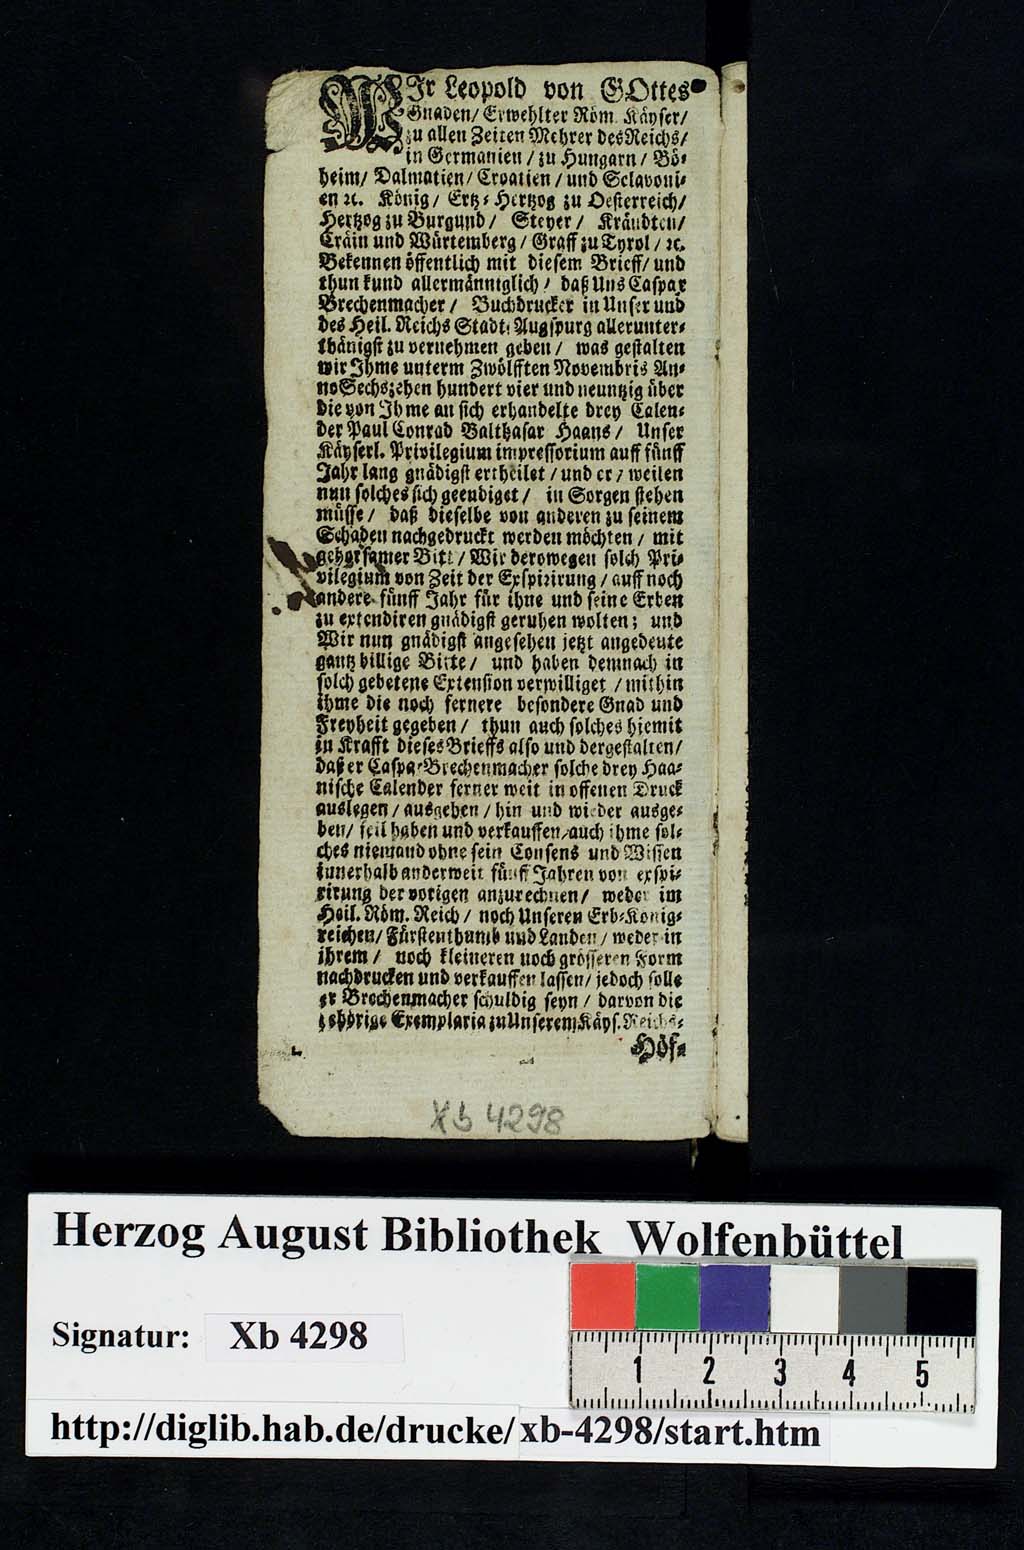 WIr Leopold von GOttes
Gnaden/ Erwehlter Röm. Käyser/
zu allen Zeiten Mehrer des Reichs/
in Germanien / zu Hungarn / Bö-
heim/ Dalmatien/ Croatien / und Sclavoni-
en ꝛc. König/ Ertz-Hertzog zu Oesterreich/
Hertzog zu Burgund/ Steyer/ Kärndten/
Cräin und Würtemberg / Graff zu Tyrol / ꝛc.
Bekennen öffentlich mit diesem Brieff/ und
thun kund allermänniglich / daß Uns Caspar
Brechenmacher / Buchdrucker in Unser und
des Heil. Reichs Stadt Augspurg allerunter-
thänigst zu vernehmen geben / was gestalten
wir Ihme unterm Zwölfften Novembris An-
no Sechszehen hundert vier und neuntzig über
die von Ihme an sich erhandelte drey Calen-
der Paul Conrad Balthasar Haans / Unser
Käyserl. Privilegium impressorium auff fünff
Jahr lang gnädigst ertheilet / und er / weilen
nun solches sich geendiget / in Sorgen stehen
müsse / daß dieselbe von anderen zu seinem
Schaden nachgedruckt werden möchten / mit
gehorsamer Bitt / Wir derowegen solch Pri-
vilegium von Zeit der Exspirirung / auff noch
andere fünff Jahr für ihne und seine Erben
zu extendiren gnädigst geruhen wolten; und
Wir nun gnädigst angesehen jetzt angedeute
gantz billige Bitte / und haben demnach in
solch gebetene Extension verwilliget / mithin
ihme die noch fernere besondere Gnad und
Freyheit gegeben / thun auch solches hiemit
in Krafft dieses Brieffs also und dergestalten/
daß er Caspar Brechenmacher solche drey Haa-
nische Calender ferner weit in offenen Druck
auslegen / ausgehen / hin und wieder ausge-
ben/ feil haben und verkauffen / auch ihme sol-
ches niemand ohne sein Consens und Wissen
innerhalb anderweit fünff Jahren von exspi-
rirung der vorigen anzurechnen / weder im
Heil. Röm. Reich / noch Unseren Erb-Konig-
reichen/ Fürstenthumb und Landen / weder in
ihrem / noch kleineren noch grösseren Form
nachdrucken und verkauffen lassen / jedoch solle
er Brechenmacher schuldig seyn / darvon die
gehörige Exemplaria zu Unserem Käys. Reichs-
Höf-
Xb 4298
Herzog August Bibliothek Wolfenbüttel
Signatur: Xb 4298
1 2 3 4 5
http://diglib.hab.de/drucke/xb-4298/start.htm